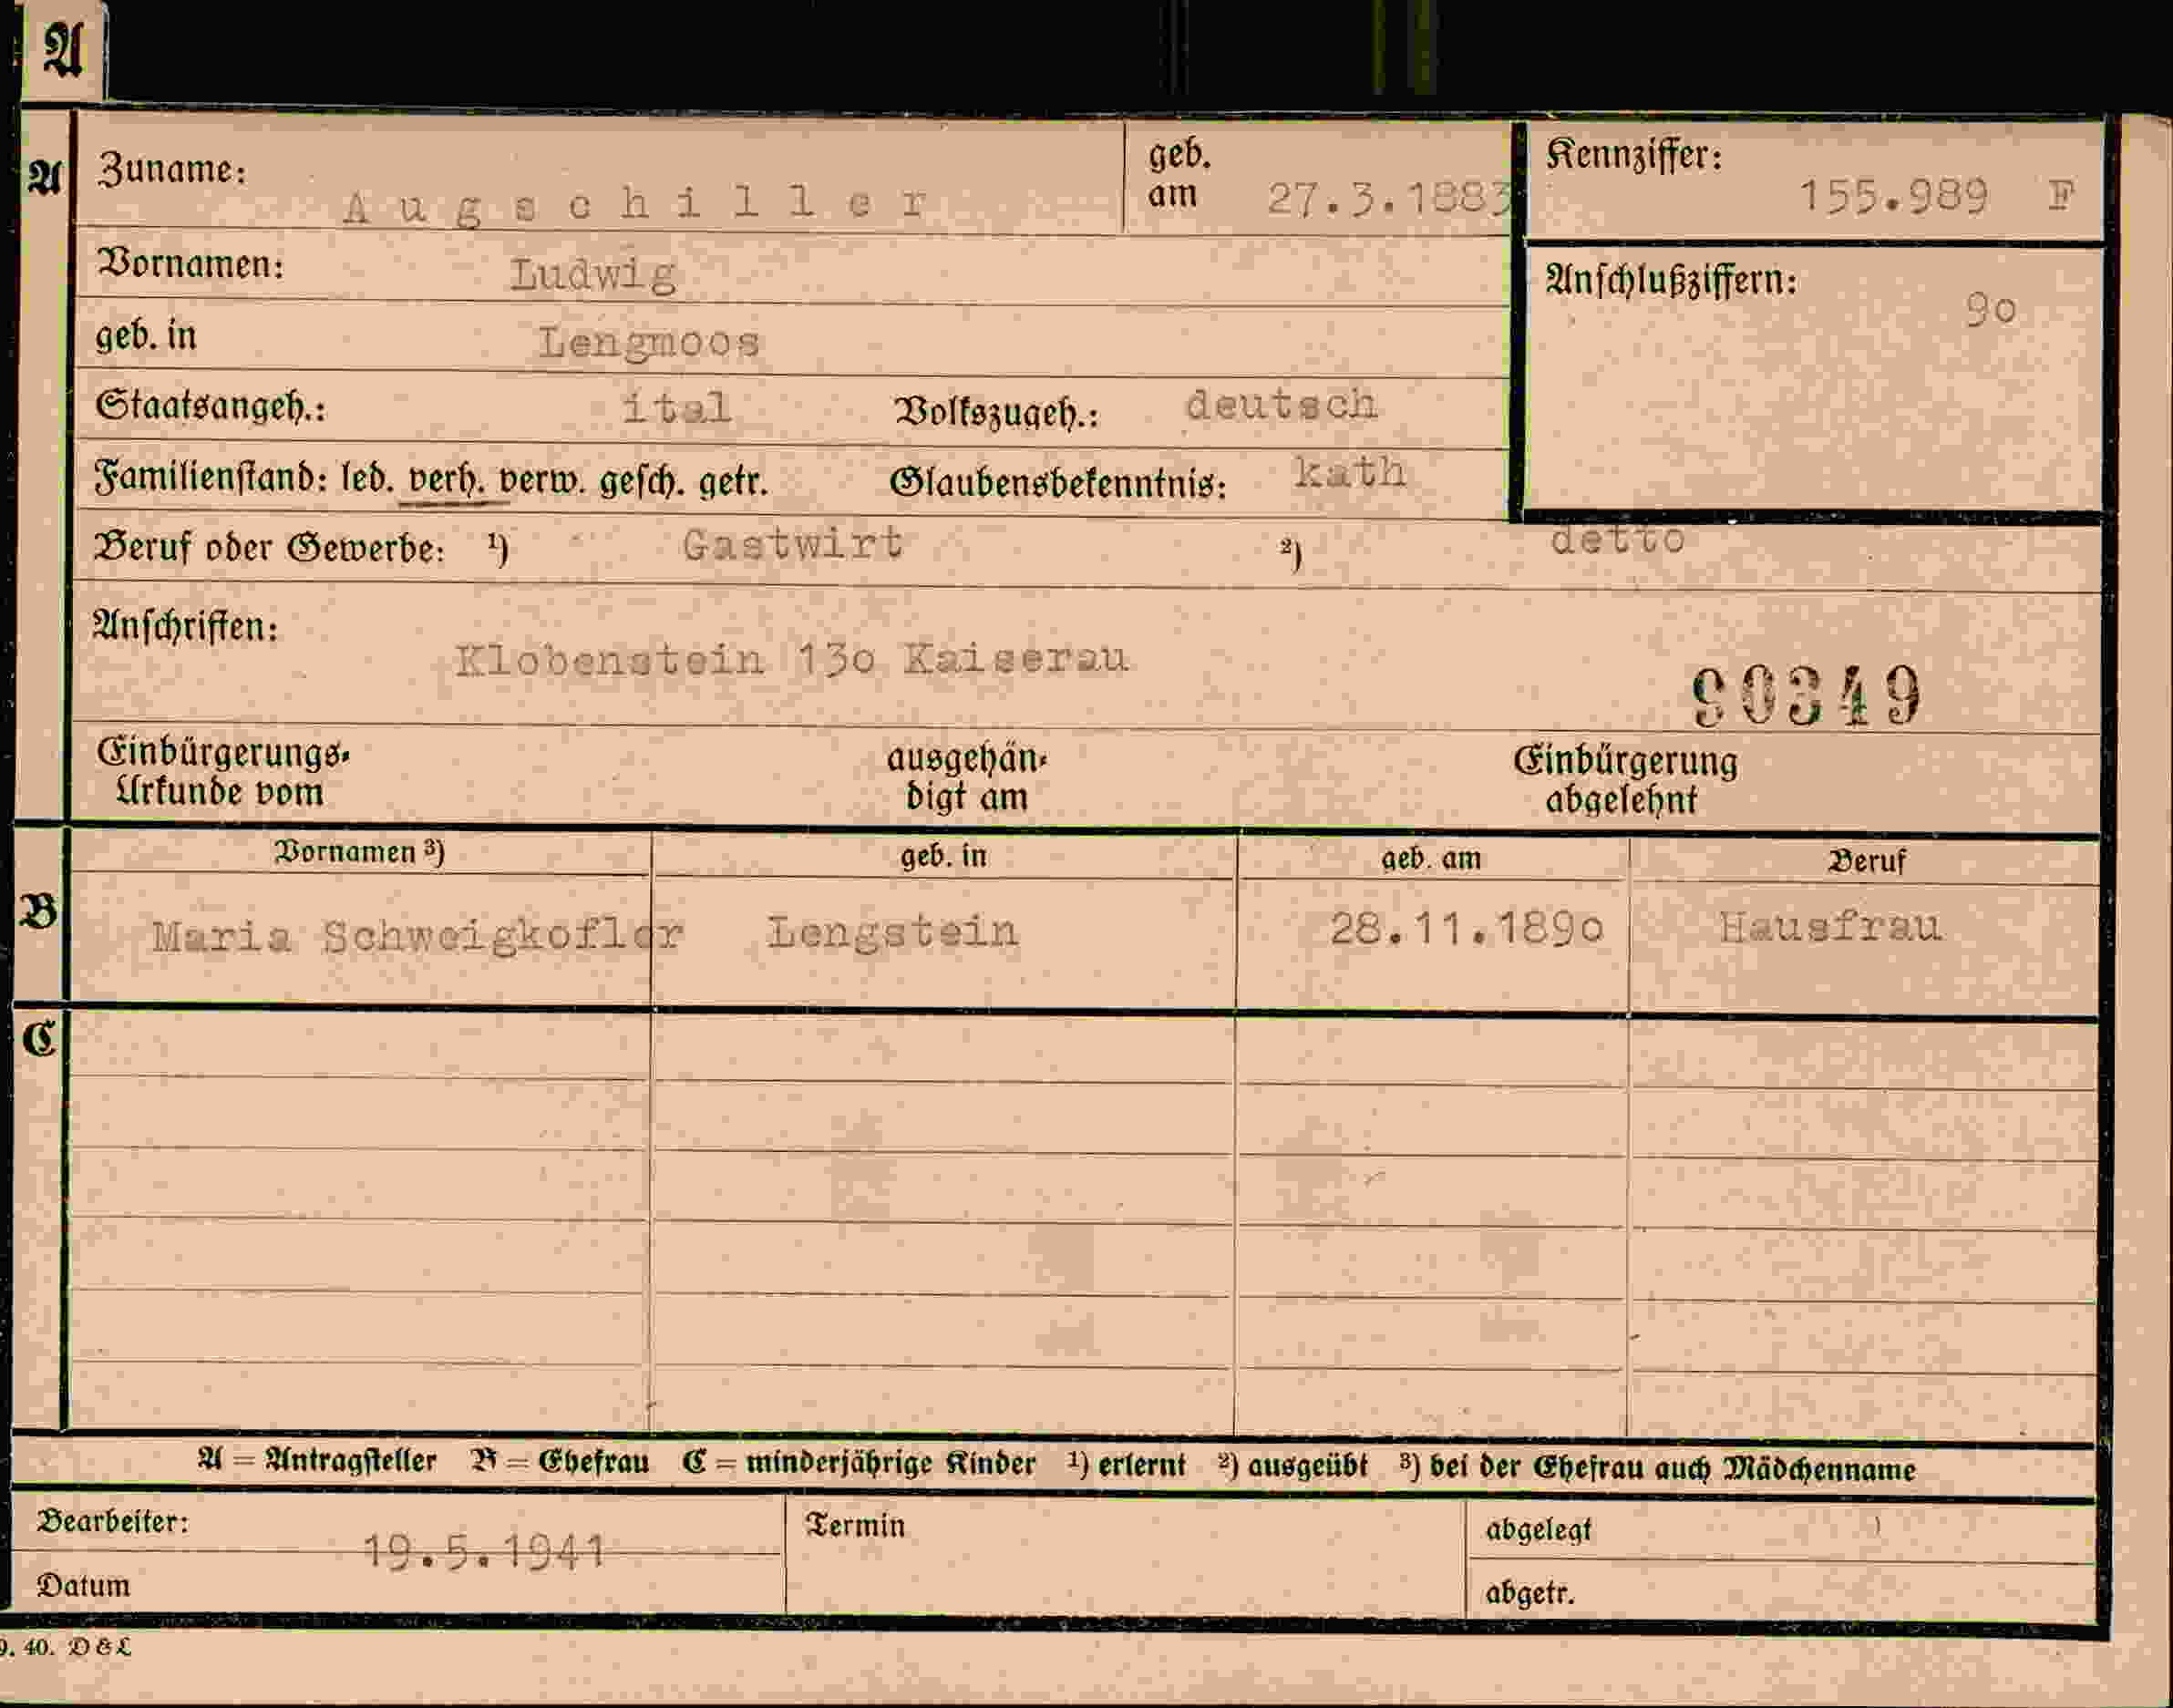 A
A
Zuname: Augschiller
geb. am 27.3.1883
Kennziffer: 155.989 F
Vornamen: Ludwig
Anschlußziffern: 90
geb. in Lengmoos
Staatsangeh.: ital Volkszugeh.: deutsch
Familienstand: led. verh. verw. gesch. getr. Glaubensbekenntnis: kath
Beruf oder Gewerbe: ¹) Gastwirt ²) detto
Anschriften: Klobenstein 130 Kaiserau
90349
Einbürgerungs-
Urkunde vom
ausgehän-
digt am
Einbürgerung
abgelehnt
B
Vornamen ³) geb. in geb. am Beruf
Maria Schweigkofler Lengstein 28.11.1890 Hausfrau
C
A = Antragsteller B = Ehefrau C = minderjährige Kinder ¹) erlernt ²) ausgeübt ³) bei der Ehefrau auch Mädchenname
Bearbeiter: 19.5.1941
Datum
Termin
abgelegt
abgetr.
9. 40. D & L